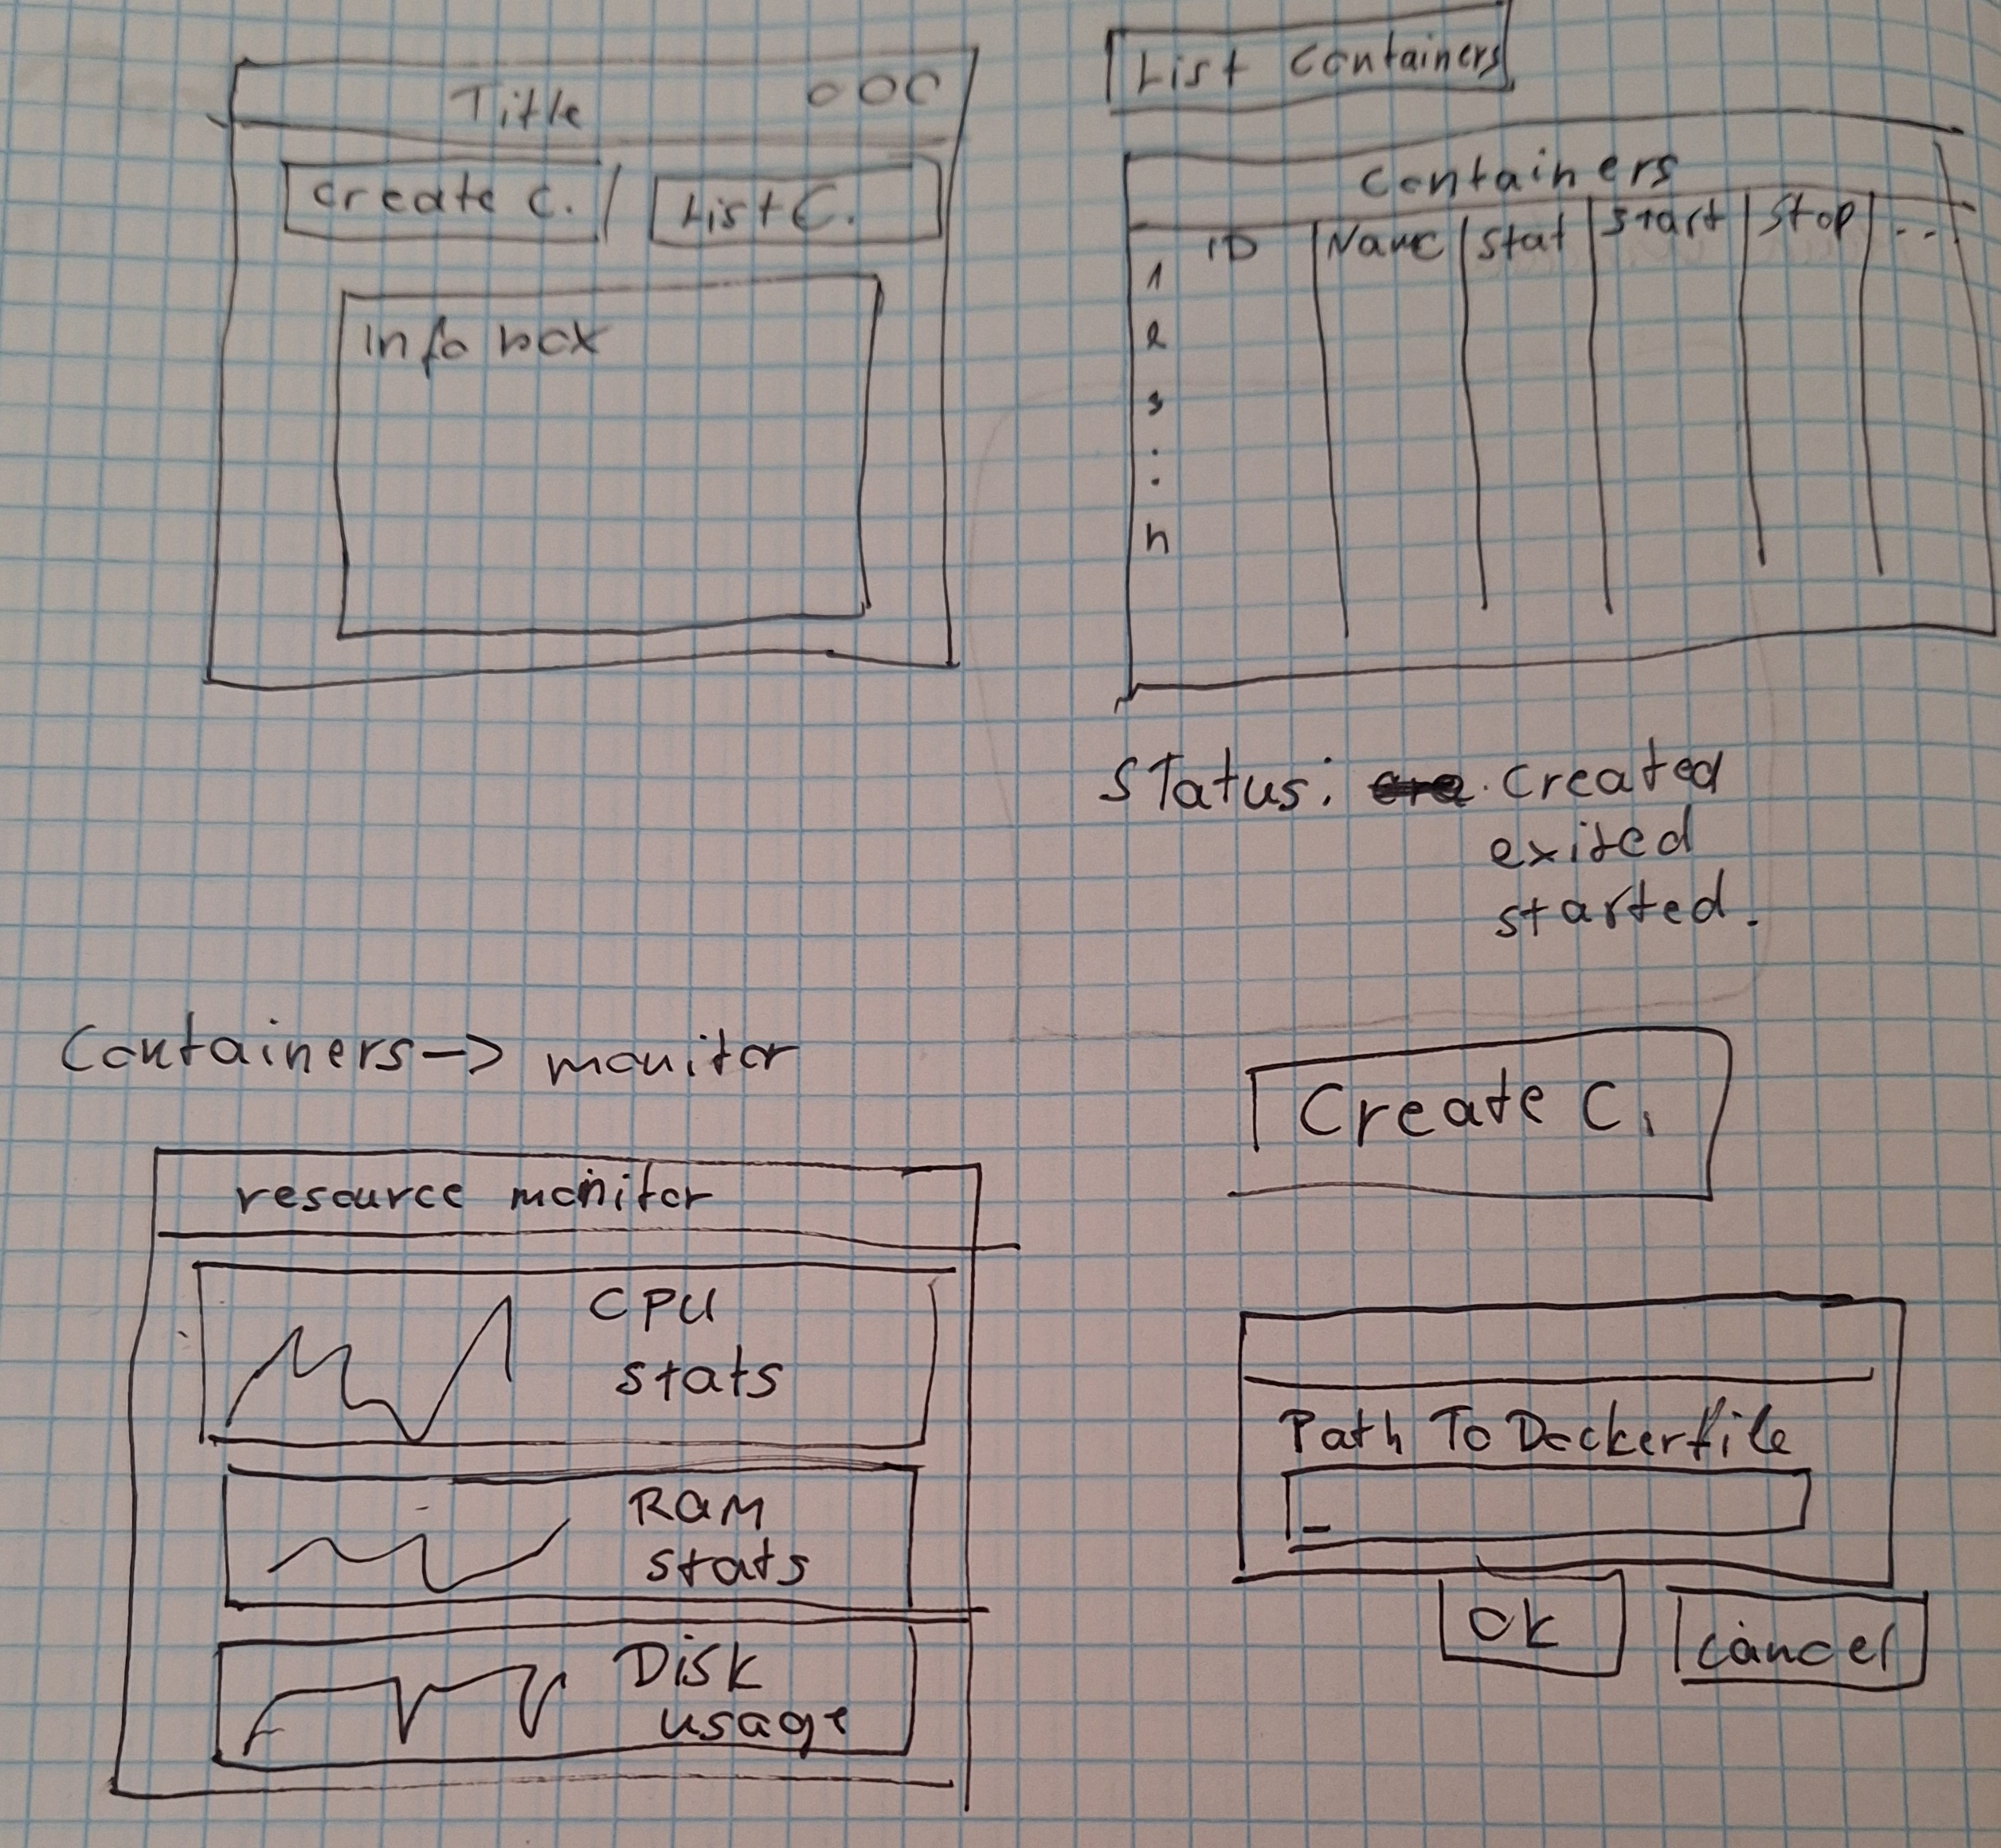 Title
Create C.
List C.
Info box
List Containers
Containers
ID Name Stat Start Stop ...
1
2
3
:
n
Status: created
exited
started.
Containers -> monitor
resource monitor
CPU
stats
RAM
stats
Disk
usage
Create C.
Path To Dockerfile
OK
cancel